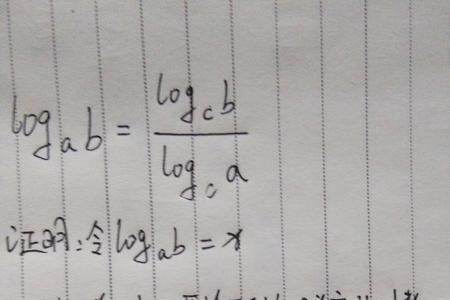 log_a b = log_c b / log_c a
证明:令 log_a b = x